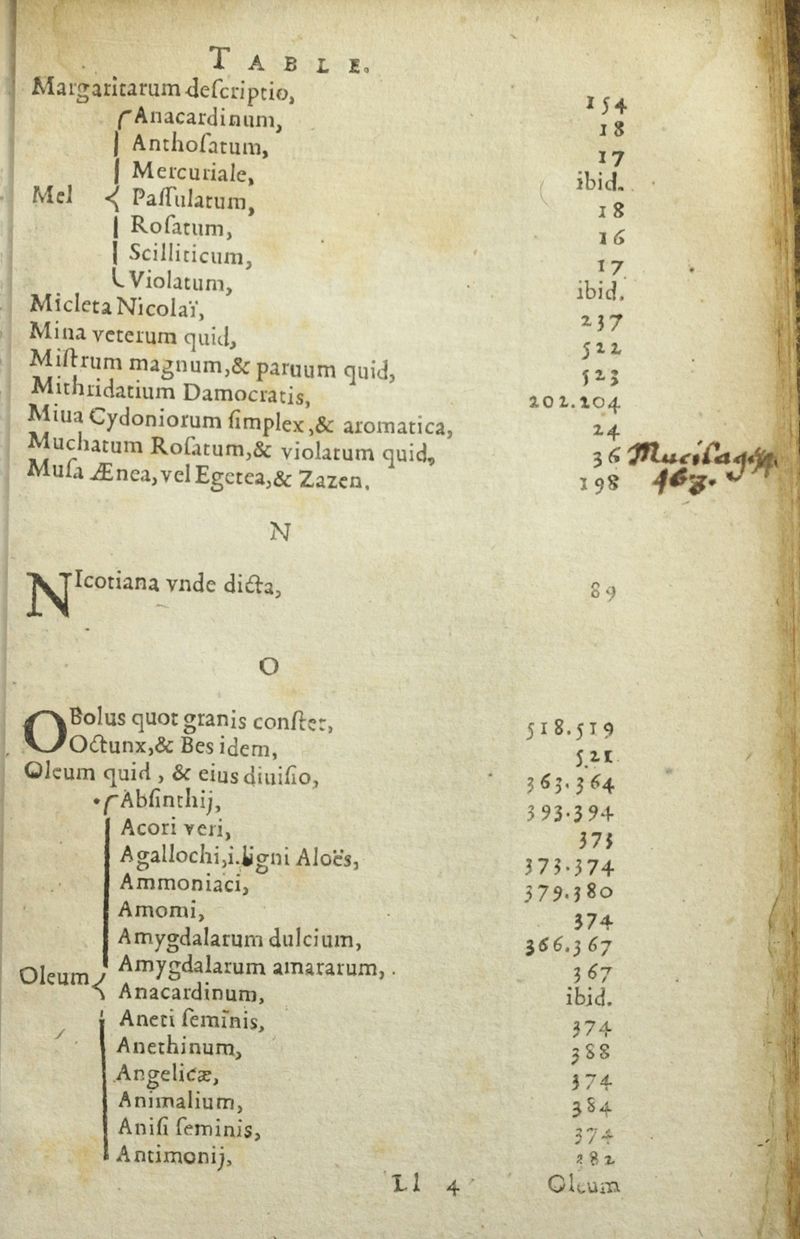 TABLE.
Margaritarum descriptio, 154
Anacardinum, 18
Anthosatum, 17
Mercuriale, ibid.
Mel Passulatum, 18
Rosatum, 16
Scilliticum, 17
Violatum, ibid.
Micleta Nicolaï, 237
Mina veterum quid, 522
Mistrum magnum,& paruum quid, 523
Mithridatium Damocratis, 202.204
Miua Cydoniorum simplex,& aromatica, 24
Muchatum Rosatum,& violatum quid, 36
Musa Ænea, vel Egetea,& Zazen. 198
463.
N
NIcotiana vnde dicta, 89
O
OBolus quot granis constet, 518.519
Octunx,& Bes idem, 521
Oleum quid, & eius diuisio, 363.364
Absinthij, 393.394
Acori veri, 373
Agallochi,i.ligni Aloës, 373.374
Ammoniaci, 379.380
Amomi, 374
Amygdalarum dulcium, 366.367
Oleum Amygdalarum amararum, 367
Anacardinum, ibid.
Aneti seminis, 374
Anethinum, 388
Angelicæ, 374
Animalium, 384
Anisi seminis, 374
Antimonij, 282
Ll 4 Oleum